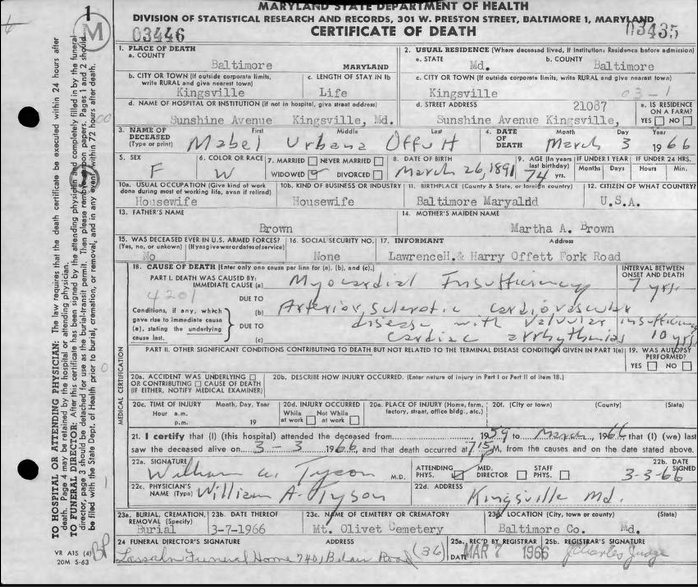 MARYLAND STATE DEPARTMENT OF HEALTH
DIVISION OF STATISTICAL RESEARCH AND RECORDS, 301 W. PRESTON STREET, BALTIMORE 1, MARYLAND
03446 CERTIFICATE OF DEATH 03435
1
M
1. PLACE OF DEATH
a. COUNTY
Baltimore MARYLAND
2. USUAL RESIDENCE (Where deceased lived, If institution: Residence before admission)
a. STATE Md. b. COUNTY Baltimore
b. CITY OR TOWN (If outside corporate limits, write RURAL and give nearest town)
Kingsville
c. LENGTH OF STAY IN 1b
Life
c. CITY OR TOWN (If outside corporate limits, write RURAL and give nearest town)
Kingsville 03-1
d. NAME OF HOSPITAL OR INSTITUTION (If not in hospital, give street address)
Sunshine Avenue Kingsville, Md.
d. STREET ADDRESS 21087
Sunshine Avenue Kingsville,
e. IS RESIDENCE ON A FARM?
YES NO
3. NAME OF DECEASED (Type or print)
First Middle Last
Mabel Urbana Offutt
4. DATE OF DEATH
Month Day Year
March 3 1966
5. SEX
F
6. COLOR OR RACE
W
7. MARRIED NEVER MARRIED
WIDOWED DIVORCED
8. DATE OF BIRTH
March 26, 1891
9. AGE (In years last birthday)
74 yrs.
IF UNDER 1 YEAR
Months Days
IF UNDER 24 HRS.
Hours Min.
10a. USUAL OCCUPATION (Give kind of work done during most of working life, even if retired)
Housewife
10b. KIND OF BUSINESS OR INDUSTRY
Housewife
11. BIRTHPLACE (County & State, or foreign country)
Baltimore Maryaldd
12. CITIZEN OF WHAT COUNTRY
U.S.A.
13. FATHER'S NAME
Brown
14. MOTHER'S MAIDEN NAME
Martha A. Brown
15. WAS DECEASED EVER IN U.S. ARMED FORCES?
(Yes, no, or unknown) (If yes give war or dates of service)
No
16. SOCIAL SECURITY NO.
None
17. INFORMANT Address
LawrenceH.& Harry Offett Fork Road
18. CAUSE OF DEATH [Enter only one cause per line for (a), (b), and (c).]
PART I. DEATH WAS CAUSED BY:
IMMEDIATE CAUSE (a) Myocardial Insufficiency
INTERVAL BETWEEN ONSET AND DEATH
7 yrs.
4201
Conditions, if any, which gave rise to immediate cause (a), stating the underlying cause last.
DUE TO (b) Arteriosclerotic cardiovascular
disease with valvular insufficiency
DUE TO (c) cardiac arrhythmias 10 yrs.
PART II. OTHER SIGNIFICANT CONDITIONS CONTRIBUTING TO DEATH BUT NOT RELATED TO THE TERMINAL DISEASE CONDITION GIVEN IN PART I(a)
19. WAS AUTOPSY PERFORMED?
YES NO
MEDICAL CERTIFICATION
20a. ACCIDENT WAS UNDERLYING
OR CONTRIBUTING CAUSE OF DEATH
(IF EITHER, NOTIFY MEDICAL EXAMINER)
20b. DESCRIBE HOW INJURY OCCURRED. (Enter nature of injury in Part I or Part II of item 18.)
20c. TIME OF INJURY Month, Day, Year
Hour a.m.
p.m. 19
20d. INJURY OCCURRED
While at Work Not While at work
20e. PLACE OF INJURY (Home, farm, factory, street, office bldg., etc.)
20f. (City or town) (County) (State)
21. I certify that (I) (this hospital) attended the deceased from 1959 to March, 1966 that (I) (we) last
saw the deceased alive on 3-3 1966, and that death occurred at 715 M, from the causes and on the date stated above.
22a. SIGNATURE
William A. Tyson M.D.
ATTENDING PHYS. MED. DIRECTOR STAFF PHYS.
22b. DATE SIGNED
3-3-66
22c. PHYSICIAN'S NAME (Type)
William A. Tyson
22d. ADDRESS
Kingsville Md.
23a. BURIAL, CREMATION, REMOVAL (Specify)
Burial
23b. DATE THEREOF
3-7-1966
23c. NAME OF CEMETERY OR CREMATORY
Mt. Olivet Cemetery
23d. LOCATION (City, town or county) (State)
Baltimore Co. Md.
24. FUNERAL DIRECTOR'S SIGNATURE ADDRESS
Lassahn Funeral Home 7401 Belair Road (36)
25a. REC'D BY REGISTRAR
DATE MAR 7 1966
25b. REGISTRAR'S SIGNATURE
J Charles Judge
TO HOSPITAL OR ATTENDING PHYSICIAN: The law requires that the death certificate be executed within 24 hours after
death. Page 4 may be retained by the hospital or attending physician.
TO FUNERAL DIRECTOR: After this certificate has been signed by the attending physician and completely filled in by the funeral
VR A15 (4)
20M 5-63